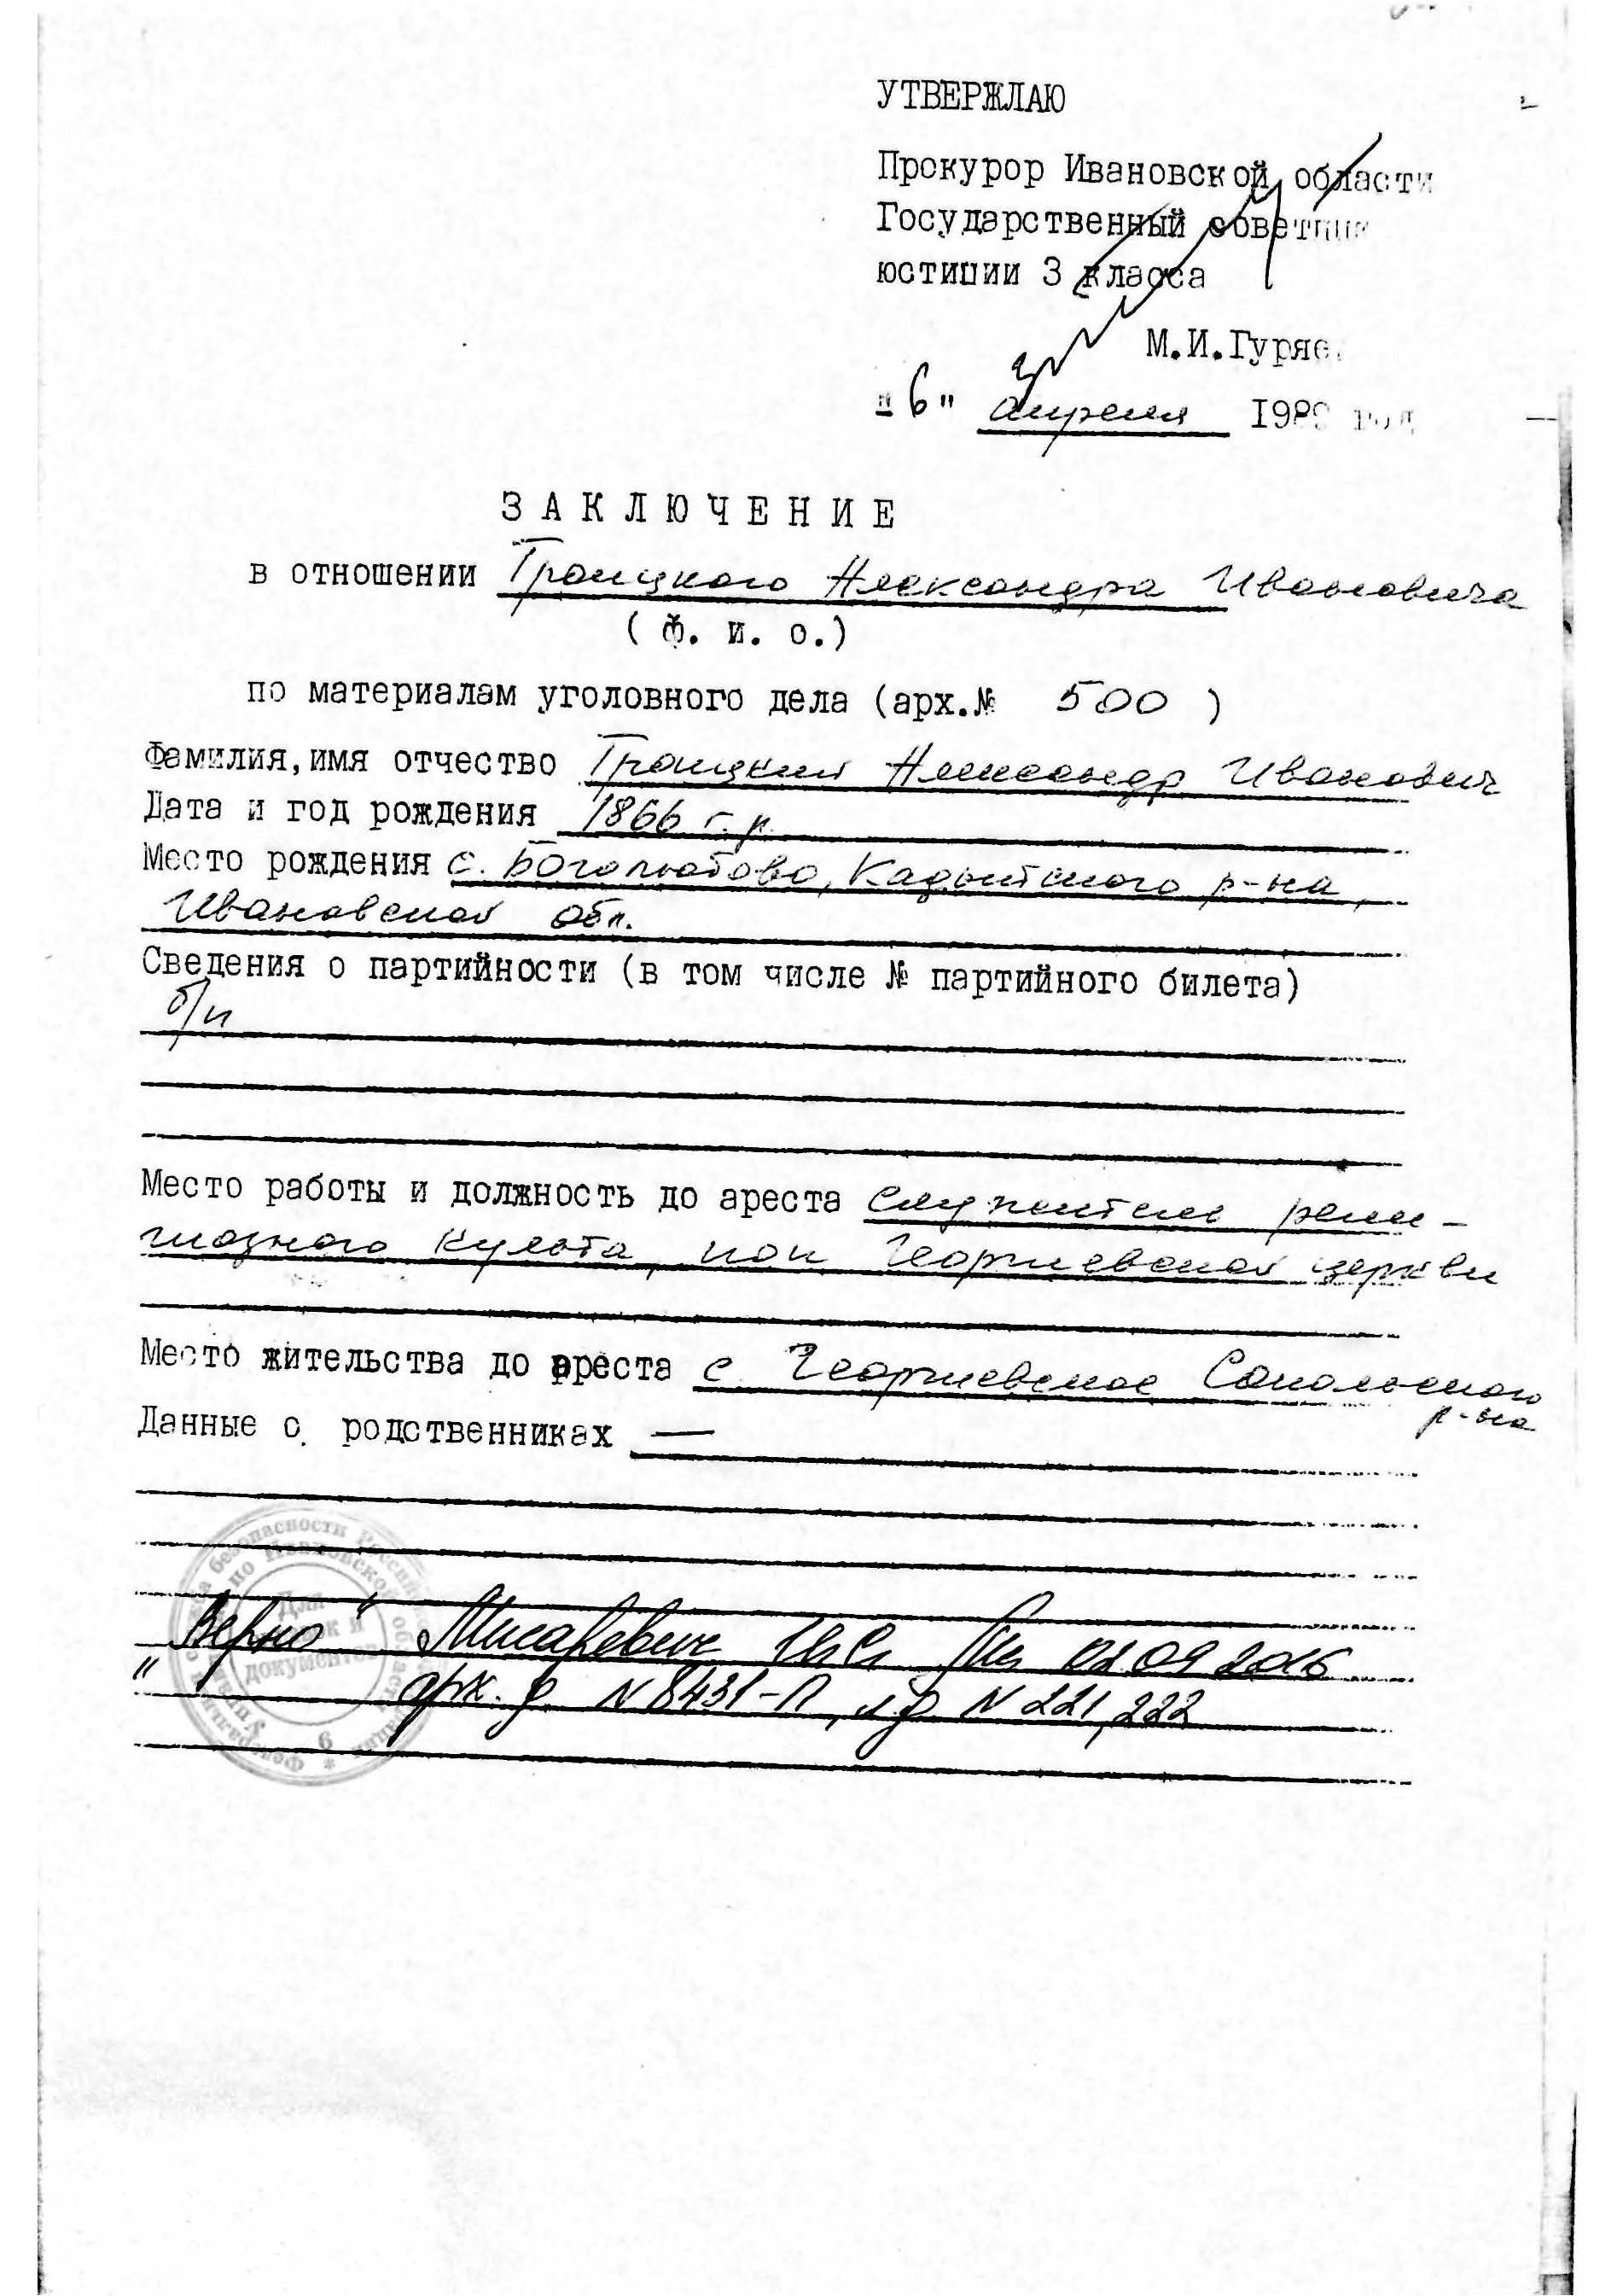 УТВЕРЖДАЮ
Прокурор Ивановской области
Государственный советник
юстиции 3 класса
М.И.Гуряе
"6" апреля 1989 год
ЗАКЛЮЧЕНИЕ
в отношении Троицкого Александра Ивановича
( Ф. И. О.)
по материалам уголовного дела (арх.№ 500 )
Фамилия, имя отчество Троицкий Александр Иванович
Дата и год рождения 1866 г.р.
Место рождения с. Боголюбово, Кадыйского р-на,
Ивановской обл.
Сведения о партийности (в том числе № партийного билета)
б/п
Место работы и должность до ареста служитель рели-
гиозного культа, поп Георгиевской церкви
Место жительства до ареста с. Георгиевское Сокольского
р-на
Данные о родственниках —
"Верно" Мисаревич 02 09 2016
арх. д. N 8431-П, л.д. N 221, 222
Для
документов
6